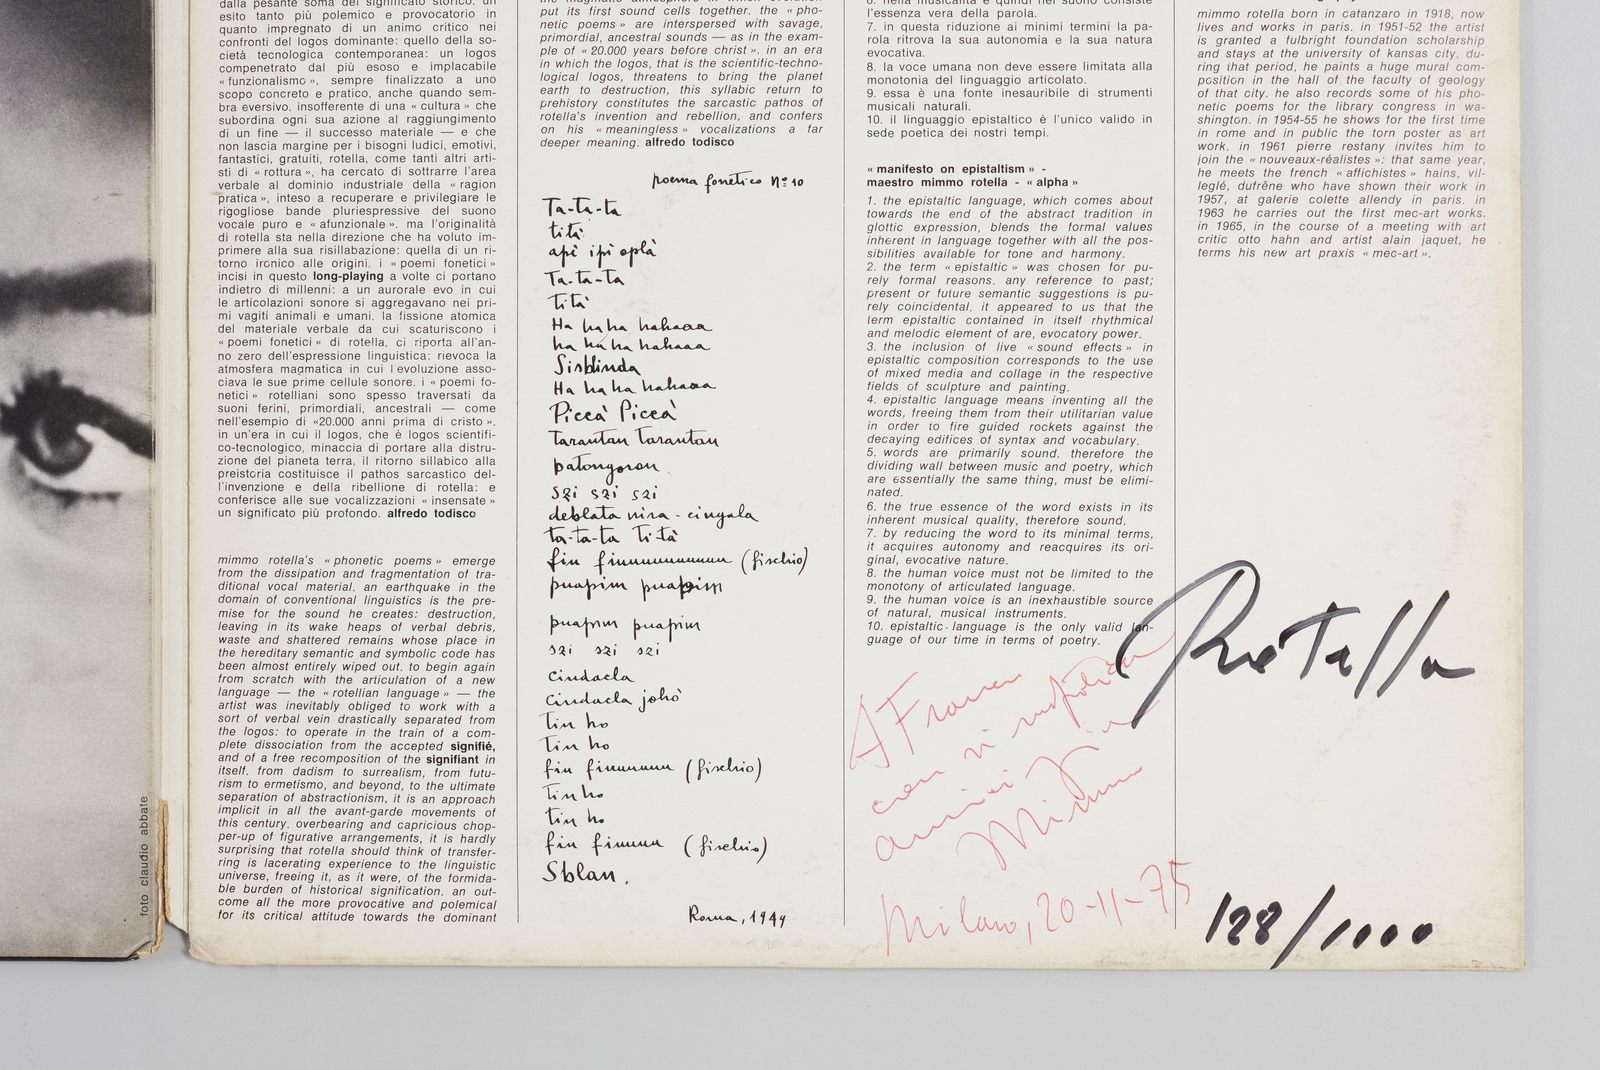 dalla pesante soma del significato storico. un
esito tanto più polemico e provocatorio in
quanto impregnato di un animo critico nei
confronti del logos dominante: quello della so-
cietà tecnologica contemporanea: un logos
compenetrato dal più esoso e implacabile
«funzionalismo», sempre finalizzato a uno
scopo concreto e pratico, anche quando sem-
bra eversivo. insofferente di una «cultura» che
subordina ogni sua azione al raggiungimento
di un fine — il successo materiale — e che
non lascia margine per i bisogni ludici, emotivi,
fantastici, gratuiti, rotella, come tanti altri arti-
sti di «rottura», ha cercato di sottrarre l'area
verbale al dominio industriale della «ragion
pratica», inteso a recuperare e privilegiare le
rigogliose bande pluriespressive del suono
vocale puro e «afunzionale». ma l'originalità
di rotella sta nella direzione che ha voluto im-
primere alla sua risillabazione: quella di un ri-
torno ironico alle origini. i «poemi fonetici»
incisi in questo long-playing a volte ci portano
indietro di millenni: a un aurorale evo in cui
le articolazioni sonore si aggregavano nei pri-
mi vagiti animali e umani. la fissione atomica
del materiale verbale da cui scaturiscono i
«poemi fonetici» di rotella, ci riporta all'an-
no zero dell'espressione linguistica: rievoca la
atmosfera magmatica in cui l'evoluzione asso-
ciava le sue prime cellule sonore. i «poemi fo-
netici» rotelliani sono spesso traversati da
suoni ferini, primordiali, ancestrali — come
nell'esempio di «20.000 anni prima di cristo».
in un'era in cui il logos, che è logos scientifi-
co-tecnologico, minaccia di portare alla distru-
zione del pianeta terra, il ritorno sillabico alla
preistoria costituisce il pathos sarcastico del-
l'invenzione e della ribellione di rotella: e
conferisce alle sue vocalizzazioni «insensate»
un significato più profondo. alfredo todisco
mimmo rotella's «phonetic poems» emerge
from the dissipation and fragmentation of tra-
ditional vocal material. an earthquake in the
domain of conventional linguistics is the pre-
mise for the sound he creates: destruction,
leaving in its wake heaps of verbal debris,
waste and shattered remains whose place in
the hereditary semantic and symbolic code has
been almost entirely wiped out. to begin again
from scratch with the articulation of a new
language — the «rotellian language» — the
artist was inevitably obliged to work with a
sort of verbal vein drastically separated from
the logos: to operate in the train of a com-
plete dissociation from the accepted signifié,
and of a free recomposition of the signifiant in
itself. from dadism to surrealism, from futu-
rism to ermetismo, and beyond, to the ultimate
separation of abstractionism, it is an approach
implicit in all the avant-garde movements of
this century. overbearing and capricious chop-
per-up of figurative arrangements, it is hardly
surprising that rotella should think of transfer-
ring is lacerating experience to the linguistic
universe, freeing it, as it were, of the formida-
ble burden of historical signification. an out-
come all the more provocative and polemical
for its critical attitude towards the dominant
foto claudio abbate
put its first sound cells together. the «pho-
netic poems» are interspersed with savage,
primordial, ancestral sounds — as in the exam-
ple of «20.000 years before christ». in an era
in which the logos, that is the scientific-techno-
logical logos, threatens to bring the planet
earth to destruction, this syllabic return to
prehistory constitutes the sarcastic pathos of
rotella's invention and rebellion, and confers
on his «meaningless» vocalizations a far
deeper meaning. alfredo todisco
poema fonetico N° 10
Ta-ta-ta
tità
apì ipì oplà
Ta-ta-ta
Tità
Ha ha ha hahaaa
ha ha ha hahaaa
Sisblinda
Ha ha ha hahaaa
Piccà Piccà
tarantan tarantan
patongoron
szi szi szi
deblata nira - cingala
ta-ta-ta ti-tà
fin finnnnnnnnnn (fischio)
puapim puapim
puapim puapim
szi szi szi
cindacla
cindacla johò
Tin ho
Tin ho
fin finnnnnn (fischio)
tin ho
tin ho
fin finnnnn (fischio)
Sblan.
Roma, 1949
6. nella musicalità e quindi nel suono consiste
l'essenza vera della parola.
7. in questa riduzione ai minimi termini la pa-
rola ritrova la sua autonomia e la sua natura
evocativa.
8. la voce umana non deve essere limitata alla
monotonia del linguaggio articolato.
9. essa è una fonte inesauribile di strumenti
musicali naturali.
10. il linguaggio epistaltico è l'unico valido in
sede poetica dei nostri tempi.
«manifesto on epistaltism» -
maestro mimmo rotella - «alpha»
1. the epistaltic language, which comes about
towards the end of the abstract tradition in
glottic expression, blends the formal values
inherent in language together with all the pos-
sibilities available for tone and harmony.
2. the term «epistaltic» was chosen for pu-
rely formal reasons. any reference to past;
present or future semantic suggestions is pu-
rely coincidental. it appeared to us that the
term epistaltic contained in itself rhythmical
and melodic element of are, evocatory power.
3. the inclusion of live «sound effects» in
epistaltic composition corresponds to the use
of mixed media and collage in the respective
fields of sculpture and painting.
4. epistaltic language means inventing all the
words, freeing them from their utilitarian value
in order to fire guided rockets against the
decaying edifices of syntax and vocabulary.
5. words are primarily sound. therefore the
dividing wall between music and poetry, which
are essentially the same thing, must be elimi-
nated.
6. the true essence of the word exists in its
inherent musical quality, therefore sound.
7. by reducing the word to its minimal terms,
it acquires autonomy and reacquires its ori-
ginal, evocative nature.
8. the human voice must not be limited to the
monotony of articulated language.
9. the human voice is an inexhaustible source
of natural, musical instruments.
10. epistaltic language is the only valid lan-
guage of our time in terms of poetry.
A Franco
con
amicizia
Mimmo
Milano, 20-11-75
mimmo rotella born in catanzaro in 1918, now
lives and works in paris. in 1951-52 the artist
is granted a fulbright foundation scholarship
and stays at the university of kansas city, du-
ring that period, he paints a huge mural com-
position in the hall of the faculty of geology
of that city. he also records some of his pho-
netic poems for the library congress in wa-
shington. in 1954-55 he shows for the first time
in rome and in public the torn poster as art
work. in 1961 pierre restany invites him to
join the «nouveaux-réalistes»: that same year,
he meets the french «affichistes» hains, vil-
leglé, dufrêne who have shown their work in
1957, at galerie colette allendy in paris. in
1963 he carries out the first mec-art works.
in 1965, in the course of a meeting with art
critic otto hahn and artist alain jaquet, he
terms his new art praxis «mec-art».
Rotella
128/1000